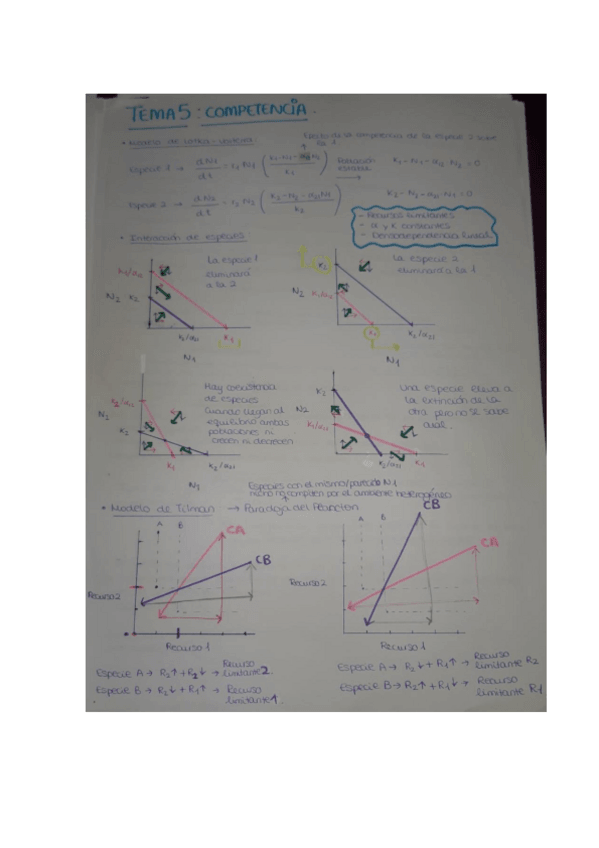 TEMA 5: COMPETENCIA.
• Modelo de Lotka-Volterra
Efecto de la competencia de la especie 2 sobre la 1
Especie 1 → dN1/dt = r1·N1 (K1-N1-α12N2 / K1) Población estable → K1-N1-α12·N2=0
Especie 2 → dN2/dt = r2·N2 (K2-N2-α21N1 / K2) K2-N2-α21·N1=0
- Recursos limitantes
- α y K constantes
- Densodependencia lineal
• Interacción de especies
La especie 1
eliminará
a la 2
K1/α12
N2 K2
K2/α21 K1
N1
La especie 2
eliminará a la 1
K2
N2 K1/α12
K1 K2/α21
N1
Hay coexistencia
de especies
Cuando llegan al
equilibrio ambas
poblaciones ni
crecen ni decrecen
K1/α12
N2
K2
K1 K2/α21
N1
Una especie lleva a
la extinción de la
otra pero no se sabe
cual.
K2
N2
K1/α12
K2/α21 K1
N1
Especies con el mismo/parecido
nicho no compiten por el ambiente heterogéneo
• Modelo de Tilman → Paradoja del Plancton
A B
CA
CB
Recurso 2
Recurso 1
A B
CB
CA
Recurso 2
Recurso 1
Especie A → R1↑ + R2↓ → Recurso limitante 2.
Especie B → R2↓ + R1↑ → Recurso limitante 1.
Especie A → R2↓ + R1↑ → Recurso limitante R2
Especie B → R2↑ + R1↓ → Recurso limitante R1